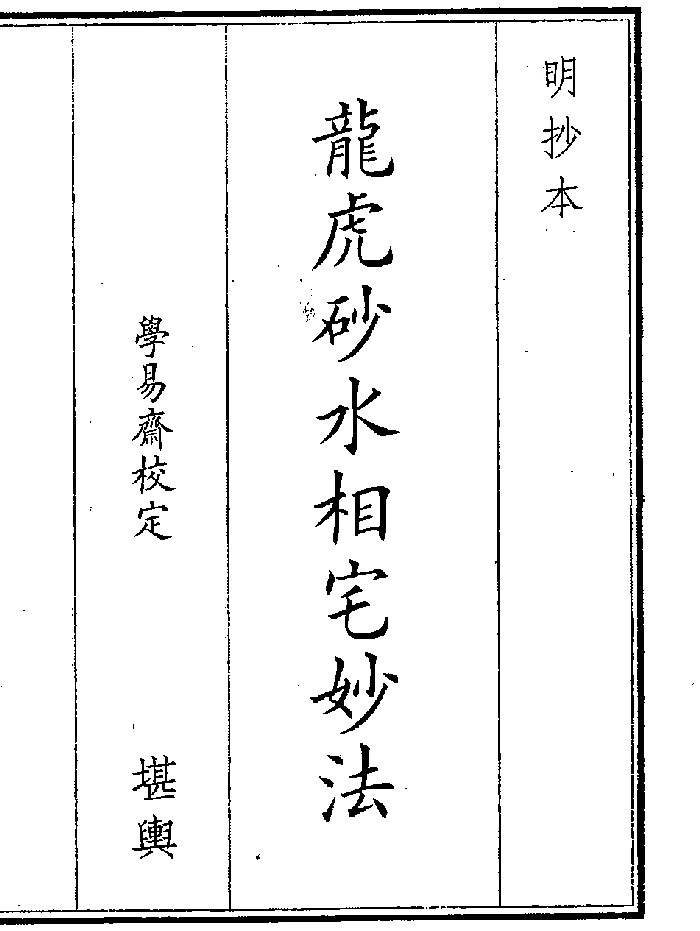 明抄本
龍虎砂水相宅妙法
學易齋校定
堪輿